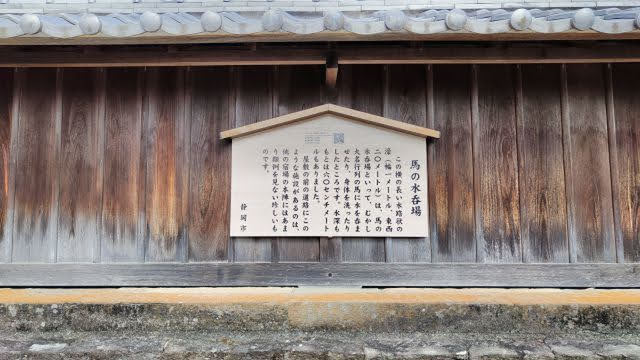 馬の水呑場
この横の長い水路状の
濠(幅一メートル、東西
二〇メートル)は、馬の
水呑といって、むかし
大名行列の馬に水を呑ま
せたり、身体を洗ったり
したところです。水深も
もとは六〇センチメート
ルもありました。
屋敷の前の道路にこの
ような施設があるのは、
他の宿場の本陣にはあま
り類例を見ない珍しいも
のです。
静岡市